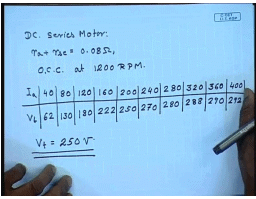 DC. Series Motor.
ra + rse = 0.085Ω,
O.C.C. at 1200 RPM.
Ia | 40 | 80 | 120 | 160 | 200 | 240 | 280 | 320 | 360 | 400
Vt | 62 | 130 | 180 | 222 | 250 | 270 | 280 | 288 | 290 | 292
Vt = 250 V